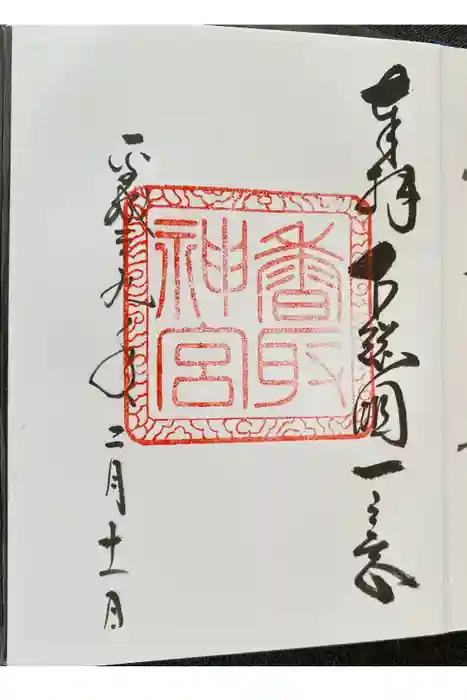 奉拝 下総國一之宮
香取
神宮
平成二九年二月十一日